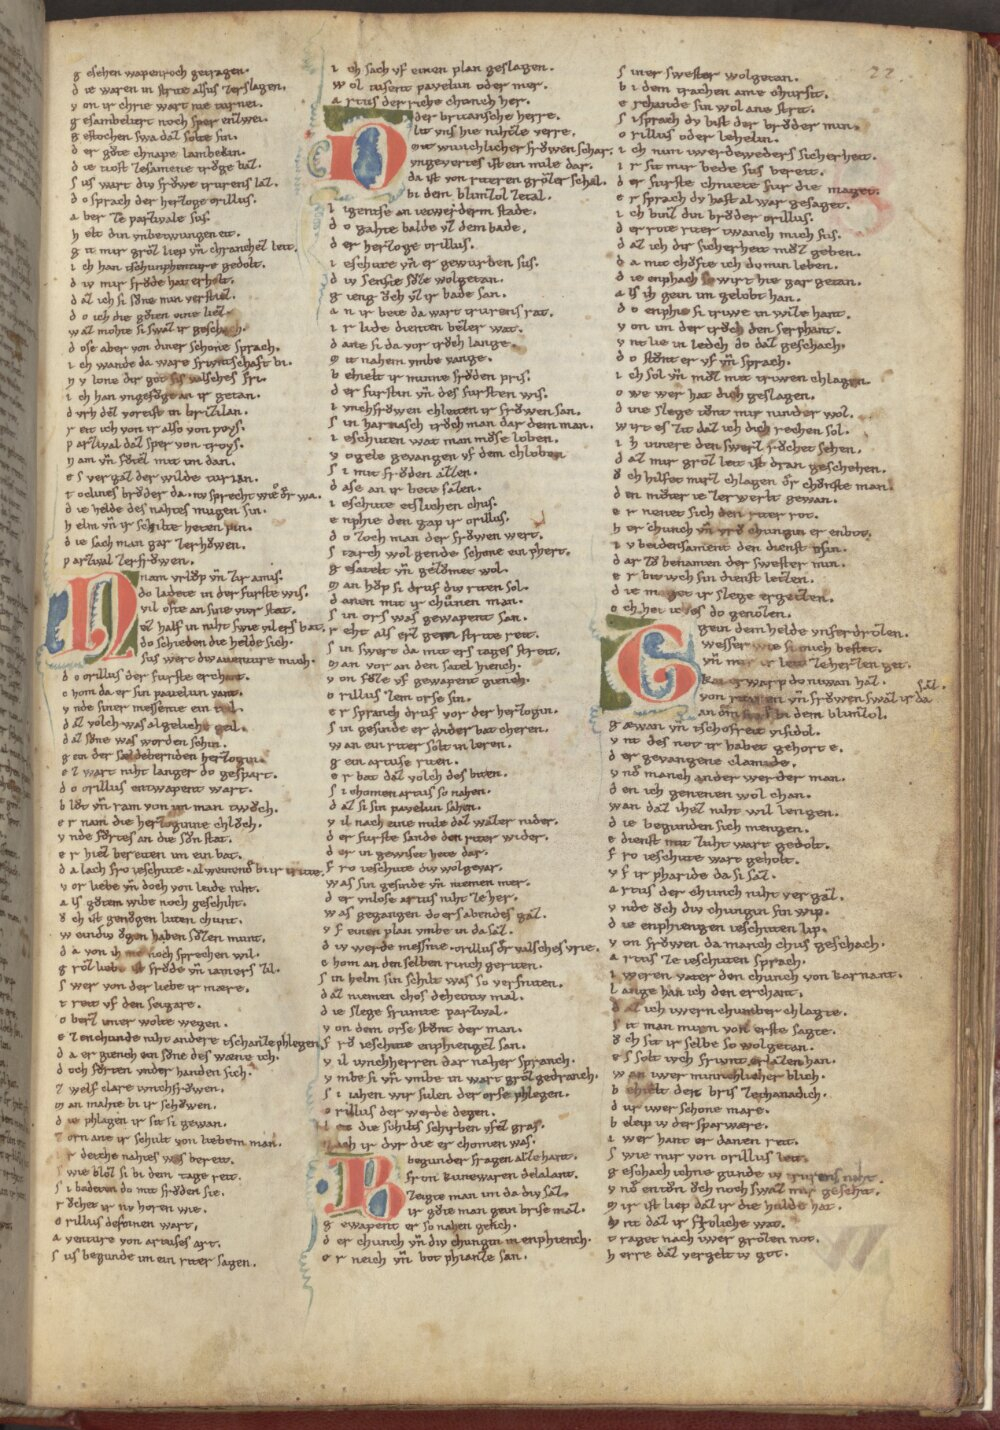 g esehen wapenroch getragen.
d ie waren in strite alsus zerslagen.
y on ir chrie wart nie turnei.
g esambeliert noch sper enzwei.
g estochen swa daz solte sin.
d er gůte chnape lambekin.
d ie tiost zesamene trůge baz.
s us wart div frŏwe trurens laz.
d o sprach der herzoge orillus.
a ber ze parzivale sus.
h elt din vnbetwungen eit.
g it mir grŏz liep vn̄ chranchez leit.
i ch han tschunphenture gedolt.
d iv mir frŏde hat erholt.
d az ich si sone min verstiez.
d o ich die gůten eine liez.
w az mohte si swaz ir geschach.
d ose aber von diner schone sprach.
i ch wande da ware frivntschaft bi.
n v lone dir got sis valsches fri.
i ch han vngefůge an ir getan.
d vrh dez voreist in brizilan.
r eit ich von ir also von poys.
p arzival daz sper von troys.
n am vn̄ fůrtez mit im dan.
e s vergaz der wilde turian.
t oclines brůder da. nv sprecht wie ŏr wa.
d ie helde des nahtes mugen sin.
h elm vn̄ ir schilte heten pin.
d ie sach man gar zerhŏwen.
p arzival zer frŏwen.
N nam vrlŏp vn̄ zir amis.
do ladete in der furste wis.
vil ofte an sine viur stat.
ez half in niht swie vil ers bat.
do schieden die helde sich.
sus wert div aventure mich.
d o orillus der furste erchant.
c hom da er sin pavelun vant.
v nde siner messenie ein teil.
d az volch was algeliche geil.
d az sůne was worden schin.
g ein der sældebernden herzogin.
e z wart niht langer do gespart.
d o orillus entwapent wart.
b lůt vn̄ ram von im man twŏch.
e r nam die herzoginne chlŏch.
v nde fůrtes an die sůn stat.
e r hiez bereiten im ein bat.
d a lach fro ieschute. al weinenŏ bi ir trute.
v or liebe vn̄ doch von leide niht.
a ls gůtem wibe noch geschiht.
ŏ ch ist genůgen luten chunt.
w eindiv ŏgen haben sůzen munt.
d a von ih mer noch sprechen wil.
g roz liebe ist frŏde vn̄ iamers zil.
s wer von der liebe ir mære.
t reit vf den seigare.
o berz imer wolte wegen.
e z enchunde niht andere tschanze phlegen.
d a er giench ein sůne des wæne ich.
d och fůrten under handen sich.
z welf clare ivnchfrŏwen.
m an mahte bi ir schŏwen.
d ie phlagen ir sit si gewan.
z orn ane ir schult von liebem man.
i r deiche nahtes was bereit.
s wie blŏz si bi dem tage reit.
s i badeten do mit frŏden sie.
r ŏchet ir nv horen wie.
o rillus des innen wart,
a venture von artuses art.
s us begunde im ein riter sagen.
i ch sach vf einen plan geslagen.
w ol tusent pavelun oder mer.
a rtus der riche chunich her.
D der britanische herre.
lit vns hie nihtze verre.
mit wunchlicher frŏwen schar.
vngevertes ist ein mile dar.
da ist von riteren grŏzer schal.
bi dem blimizol zetal.
l igentse an ietwederm stade.
d o gahte balde vz dem bade.
d er herzoge orillus.
i eschute vn̄ er gewurben sus.
d iv senfte sůze wolgetan.
g ieng ŏch vz ir bade san.
a n ir bete da wart trurens rat.
i r lide dienten bezer wat.
d ante si da vor trŏch lange.
m it nahem vmbe vange.
b ehielt ir minne frŏden pris.
d er furstin vn̄ des fursten wis.
i vnchfrŏwen chleiten ir frŏwen san.
s in harnasch trŏch man dar dem man.
i eschuten wat man mŏse loben.
v ogele gevangen vf dem chloben
s i mit frŏden azzen.
d ase an ir bete sazen.
i eschute etslichen chus.
e nphie den gap ir orillus.
d o zoch man der frŏwen wert.
s tarch wol gende schone ein phert.
g esatelt vn̄ gezŏmet wol.
m an hŏp si druf div riten sol.
d anen mit ir chůnen man.
s in ors was gewapent san.
r eht als erz gein strite reit.
s in swert da mit ers tages streit.
m an vor an den satel hiench.
v on fůze vf gewapent giench.
o rillus zem orse sin.
e r spranch druf vor der herzogin.
s in gesinde er dŏider bat cheren.
w an ein riter solt in leren.
g ein artuse riten.
e r bat daz volch des biten.
s i chomen artus so nahen.
d az si sin pavelun sahen.
v il nach eine mile daz wazer nider.
d er furste sande den riter wider.
d er in gewiset hete dar.
f ro ieschute div wolgevar.
w as sin gesinde vn̄ niemen mer.
d er vnlose artus niht ze her.
w as gegangen do ers abendes gaz.
v f einen plan vmbe in da saz.
d iv werde messinie. orillus der valsches vrie.
c hom an den selben rinch geriten.
s in helm sin schilt was so versniten.
d az niemen chos deheiniv mal.
d ie slege frumte parzival.
v on dem orse stŏnt der man.
f rŏ ieschute enphiengez san.
v il ivnchherren dar naher spranch.
v mbe si vn̄ vmbe in wart grŏz gedranch.
s i iahen wir sulen der orse phlegen.
o rillus der werde degen.
l eit die schilts schirben vfez gras.
n ach ir dvr die er chomen was.
B begunder fragen alle hant.
frŏn kunewaren delalant.
zeigte man im da div saz.
ir gůte man gein brise maz.
g ewapent er so nahen gench.
d er chunch vn̄ div chungin in enphiench.
e r neich vn̄ bot phianze san.
s iner swester wolgetan.
b i dem trachen ame chursit.
e rchande sin wol ane strit.
s i sprach dv bist der brŏder min.
o rillus oder lehelin.
i ch nim iwer deweders sicherheit.
i r sit mir bede sus bereit.
d er furste chniete fur die maget.
e r sprach dv hast al war gesaget.
i ch binz din brŏder orillus.
d er rote riter twanch mich sus.
d az ich dir sicherheit mŏz geben.
d a mit chŏfte ich do min leben.
d ie enphach so wirt hie gar getan.
a ls ih gein im gelobt han.
d o enphie si triwe in wize hant.
v on im der trŏch den serpant.
v nt lie in ledch do daz geschach.
d o stŏnt er vf vn̄ sprach.
i ch sol vn̄ mŏz mit triwen chlagen
o we wer hat dich geslagen.
d ine slege tŏnt mir nimder wol.
w irt es zit daz ich dich rechen sol.
i h innere den swerz růchet sehen.
d az mir grŏz leit ist dran geschehen.
ŏ ch hilfet mirz chlagen der chŏnste man.
d en mŏter ie zer werlt gewan.
e r nennet sich den riter rot.
h er chunch vn̄ vrŏ chungin er enbot.
i v beiden sament den dienst sin.
d ar zů benamen der swester min.
e r bitet ivch sin dienst letzen.
d ie maget ir slege ergetzen.
o ch het ich es do genozen.
G gein dem helde vnferdrozen.
wesser wie si mich bestet.
vn̄ mir ir leit ze herzen get.
kai erwarp do niwan haz.
von riteren vn̄ frŏwen swaz ir da saz.
an dem stade bi dem blimizol.
g æwan vn̄ tschofreit visidol.
v nt des not ir habet gehort e.
d er gevangene clamide.
v nŏ manch ander werder man.
d en ich genenen wol chan.
wan daz ihez niht wil lengen.
d ie begunden sich mengen.
e dienst mit zuht wart gedolt.
f ro ieschute wart geholt.
v f ir pharide da si saz.
a rtus der chunch niht vergaz.
v nde ŏch div chungin sin wip.
d ie enphiengen ieschuten lip.
v on frŏwen da manch chus geschach.
a rtus ze ieschuten sprach.
i weren vater den chunch von karnant.
l ange han ich den erchant.
d az ich iwern chumber chlagte.
s it man mirn von erste sagte.
ŏ ch sit ir selbe so wolgetan.
e s solt ivch friunt erlazen han.
w an iwer minnchlicher blich.
b ehielt den bris zechanadich.
d ur iwer schone mare.
b eleip iv der sparwære.
i wer hant er danen reit.
s wie mir von orillus leit.
g eschach ichne gunde iv trurens niht.
v nŏ entŏn ŏch noch swaz mir geschit.
m ir ist liep daz ir die hulde hat.
v nt daz ir frŏliche wat.
t raget nach iwer grŏzen not.
h erre daz vergelt iv got.
22